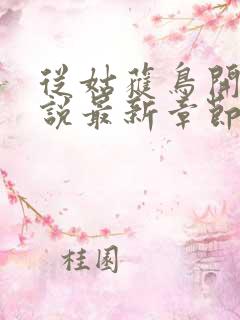 從姑蘿鳥開
說最新章節
桂園